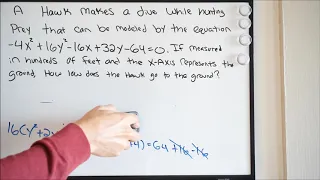 A Hawk makes a dive while hunting
Prey that can be modeled by the equation
-4x²+16y²-16x+32y-64=0. If measured
in hundreds of feet and the x-Axis represents the
ground. How low does the Hawk go to the ground?
16(y²+2y
4)=64+16-16